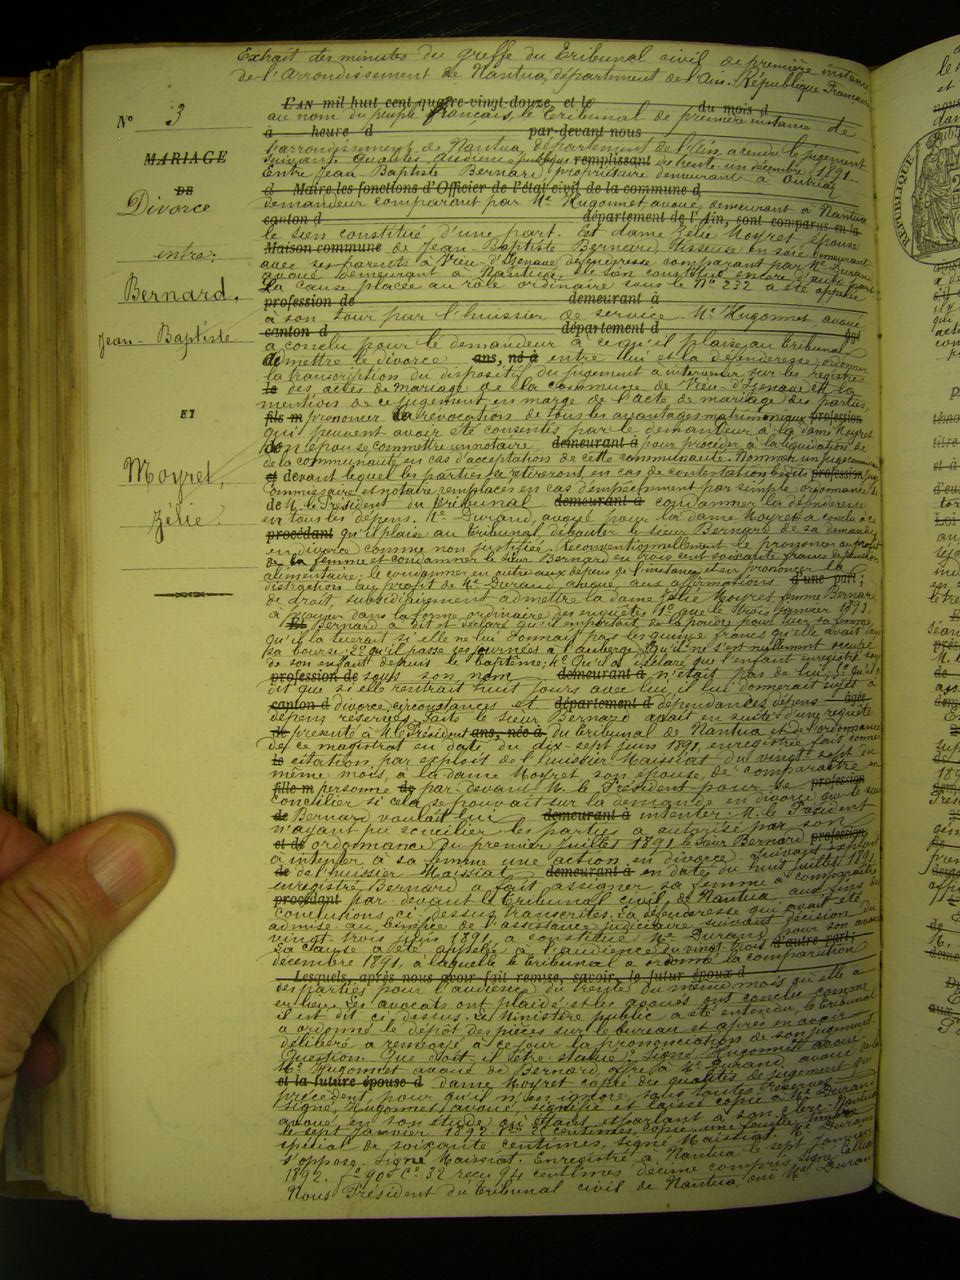 Extrait des minutes du greffe du Tribunal civil de première instance
de l'Arrondissement de Nantua, département de l'Ain. République Française
L'AN mil huit cent quatre-vingt-douze et le du mois d
N° 3
au nom du peuple français, le Tribunal de première instance de
à heure d par-devant nous
MARIAGE
DE
Divorce
entre:
Bernard,
Jean-Baptiste
ET
Moyret,
Zélie.
l'arrondissement de Nantua, département de l'Ain a rendu le jugement
suivant. remplissant du trente un décembre 1891.
Entre Jean-Baptiste Bernard, propriétaire demeurant à
d Maire les fonctions d'Officier de l'état civil de la commune d
demandeur comparant par Me Hugonnet avoué, demeurant à Nantua
canton d département de l'Ain, sont comparus en la
le sien constitué d'une part. Et dame Zélie Moyret, épouse
Maison commune de Jean-Baptiste Bernard, tisseuse en soie demeurant
avec ses parents à Vieu-d'Izenave défenderesse comparant par Me Durand
avoué demeurant à Nantua, le sien constitué encore d'autre part
La cause placée au rôle ordinaire sous le N° 232 a été appelée
profession de demeurant à
à son tour par l'huissier de service. Me Hugonnet avoué
canton d département d âgé
a conclu pour le demandeur à ce qu'il plaise au tribunal
de admettre le divorce ans, né à entre lui et la défenderesse, ordonner
la transcription du dispositif du jugement à intervenir sur les registres
le des actes de mariage de la commune de Vieu-d'Izenave et la
mention de ce jugement en marge de l'acte de mariage des parties,
fils m prononcer la révocation de tous les avantages matrimoniaux profession
qui peuvent avoir été consentis par le demandeur à la dame Moyret
son épouse commettre un notaire, demeurant à pour procéder à la liquidation de
de la communauté en cas d'acceptation de cette communauté. Nommer un juge commissaire
et devant lequel les parties se retireront en cas de contestation profession
commissaire et notaire remplacés en cas d'empêchement par simple ordonnance
de M. le Président du tribunal demeurant à condamner la défenderesse
en tous les dépens. Me Durand, avoué pour la dame Moyret a conclu à ce
procédant qu'il plaise au tribunal, débouter le sieur Bernard de sa demande
en divorce comme non justifiée. Reconventionnellement le prononcer au profit
de la femme et condamner le sieur Bernard en trois cent soixante francs de pension
alimentaire; le condamner en outre aux dépens de l'instance et en prononcer la
distraction au profit de Me Durand, avoué, aux affirmations d'une part;
de droit, subsidiairement admettre la dame Zélie Moyret femme Bernard
à prouver dans la forme ordinaire des enquêtes 1° que le trois janvier 1891,
Et Bernard a dit et déclaré qu'il emportait de la poudre pour tuer sa femme,
qu'il la tuerait si elle ne lui donnait pas les quinze francs qu'elle avait dans
sa bourse; 2° qu'il passe ses journées à l'auberge; 3° qu'il ne s'est nullement occupé
de son enfant depuis le baptême; 4° Qu'il a déclaré que l'enfant enregistré
profession de sous son nom demeurant à n'était pas de lui; 5° qu'il a
dit que si elle rentrait huit jours avec lui, il lui donnerait
canton d divorce, circonstances et département d dépendances, dépens âgée
dépens réservés. Faits le sieur Bernard avait en suite d'une requête
présenté à M. le Président ans, née à du tribunal de Nantua et de l'ordonnance
de ce magistrat en date du dix-sept juin 1891, enregistrée fait donner
le citation par exploit de l'huissier Maissiat du vingt-sept du
même mois, à la dame Moyret son épouse, de comparaître en
fille m personne de par devant M. le Président pour se profession
concilier si cela se pouvait sur la demande en divorce que le sieur
de Bernard voulait lui demeurant à intenter; M. le Président
n'ayant pu concilier les parties a autorisé par son
et de ordonnance du premier juillet 1891 le sieur Bernard profession
à intenter à sa femme une action en divorce. Suivant exploit
de de l'huissier Maissiat demeurant à en date du huit juillet 1891
enregistré Bernard a fait assigner sa femme à comparaître
procédant par devant le tribunal civil de Nantua, aux fins des
conclusions ci-dessus transcrites. La défenderesse qui avait été
admise au bénéfice de l'assistance judiciaire suivant décision du
vingt trois juin 1891, a constitué Me Durand pour son avoué
La cause a été appelée à l'audience du vingt trois d'autre part;
décembre 1891, à laquelle le tribunal a ordonné la comparution
Lesquels, après nous avoir fait remise, savoir, le futur époux d
des parties pour l'audience du trente du même mois qu'elle a
eu lieu. Les avocats ont plaidé et les avoués ont conclu comme
il est dit ci-dessus. Le Ministère public a été entendu, le tribunal
a ordonné le dépôt des pièces sur le bureau et après en avoir
délibéré a renvoyé à ce jour la prononciation de son jugement.
Question. Que doit-il être statué? Signé Hugonnet avoué
Me Hugonnet avoué de Bernard, offre à Me Durand avoué de la
et la future épouse d dame Moyret copie des qualités de jugement qui
précèdent, pour qu'il n'en ignore, sous toutes réserves
signé, Hugonnet avoué, signifié et laissé copie à Me Durand
avoué en son étude où étant et parlant à son clerc. Nantua
le sept janvier 1892 centimes, copie une feuille timbre
spécial de soixante centimes, signé Maissiat. Me Durand
s'oppose. Signé Maissiat. Enregistré à Nantua le sept janvier
1892. f° 90 C° 32 reçu 94 centimes décime compris. Signé
Nous Président du tribunal civil de Nantua, ouï Me Durand